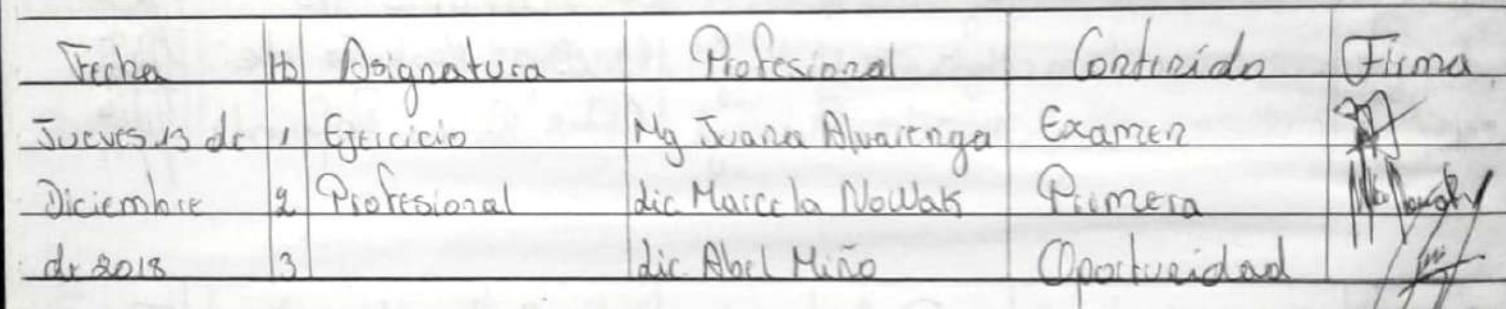 Fecha Hs Asignatura Profesional Contenido Firma
Jueves 13 de 1 Ejercicio Mg Juana Alvarenga Examen
Diciembre 2 Profesional Lic Marcela Nowak Primera
de 2018 3 Lic Abel Miño Oportunidad